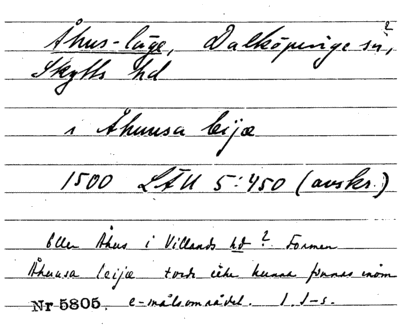 Åhus-läge, Dalköpinge sn?,
Skytts hd
i Åhuusa leijæ
1500 LÄU 5:450 (avskr.)
Eller Åhus i Villands hd? Formen
Åhuusa leijæ torde icke kunna finnas inom
Nr 5805. e-målsområdet. I. I-s.